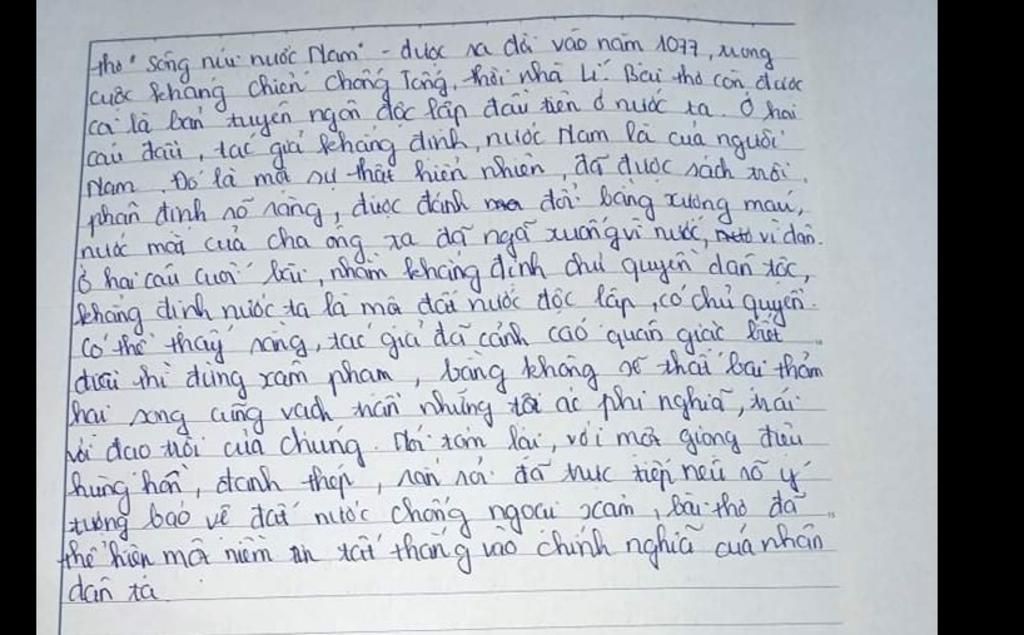 thơ "Sông núi nước Nam" - được ra đời vào năm 1077, trong
cuộc kháng chiến chống Tống, thời nhà Lí. Bài thơ còn được
coi là bản tuyên ngôn độc lập đầu tiên ở nước ta. Ở hai
câu đầu, tác giả khẳng định, nước Nam là của người
Nam. Đó là một sự thật hiển nhiên, đã được sách trời
phân định rõ ràng, được đánh đổi bằng xương máu,
nước mắt của cha ông ta đã ngã xuống vì nước, vì dân.
Ở hai câu cuối bài, nhằm khẳng định chủ quyền dân tộc,
khẳng định nước ta là một đất nước độc lập, có chủ quyền.
Có thể thấy rằng, tác giả đã cảnh cáo quân giặc biết
điều thì đừng xâm phạm, bằng không sẽ thất bại thảm
hại song cũng vạch trần những tội ác phi nghĩa, trái
với đạo trời của chúng. Nói tóm lại, với một giọng điệu
hùng hồn, đanh thép, rắn rỏi đã trực tiếp nêu rõ ý
tưởng bảo vệ đất nước chống ngoại xâm, bài thơ đã
thể hiện một niềm tin tất thắng vào chính nghĩa của nhân
dân ta